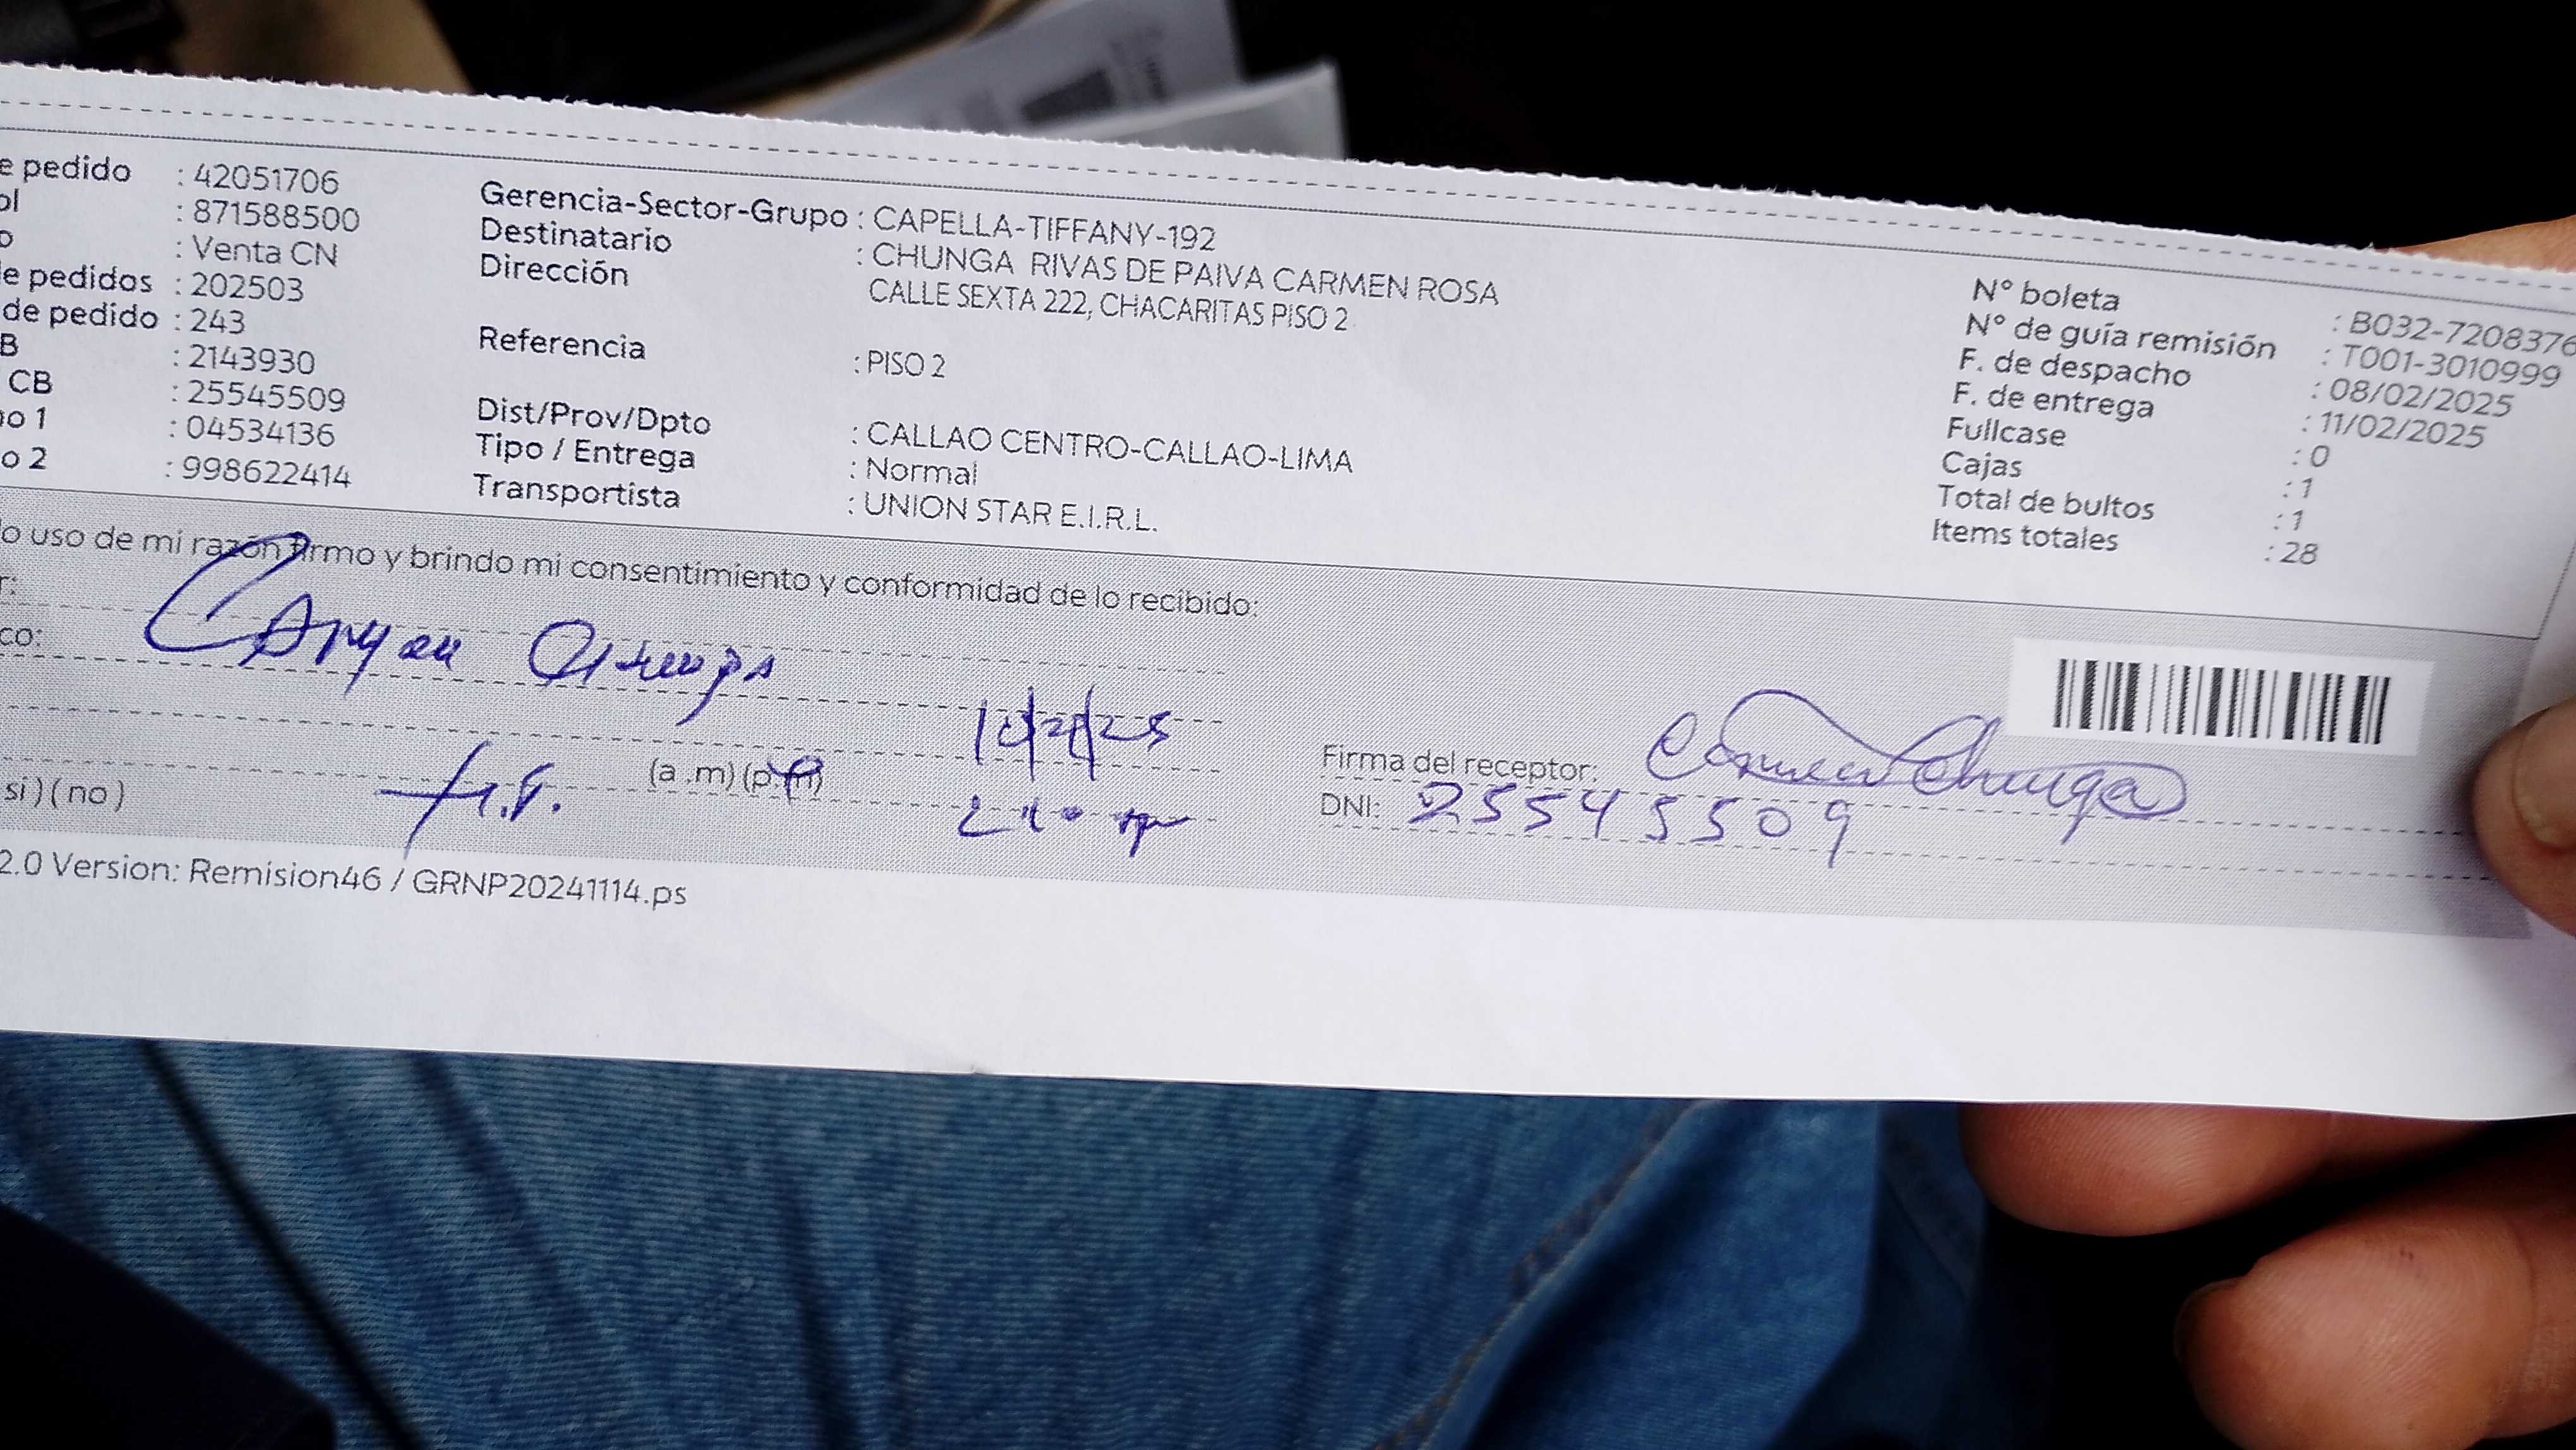 e pedido : 42051706
ol : 871588500
o : Venta CN
de pedidos : 202503
de pedido : 243
B : 2143930
CB : 25545509
no 1 : 04534136
o 2 : 998622414
Gerencia-Sector-Grupo : CAPELLA-TIFFANY-192
Destinatario : CHUNGA RIVAS DE PAIVA CARMEN ROSA
Dirección CALLE SEXTA 222, CHACARITAS PISO 2
Referencia : PISO 2
Dist/Prov/Dpto : CALLAO CENTRO-CALLAO-LIMA
Tipo / Entrega : Normal
Transportista : UNION STAR E.I.R.L.
N° boleta : B032-7208376
N° de guía remisión : T001-3010999
F. de despacho : 08/02/2025
F. de entrega : 11/02/2025
Fullcase : 0
Cajas : 1
Total de bultos : 1
Items totales : 28
o uso de mi razón firmo y brindo mi consentimiento y conformidad de lo recibido:
r:
co:
(a .m) (p.m)
si ) ( no )
Firma del receptor: Carmen Chunga
DNI: 25545509
2.0 Version: Remision46 / GRNP20241114.ps